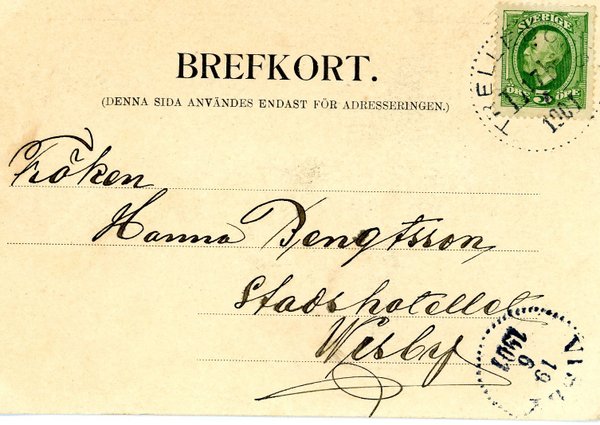 BREFKORT.
(DENNA SIDA ANVÄNDES ENDAST FÖR ADRESSERINGEN.)
SVERIGE
5
ÖRE
TRELLEBORG
1901
Fröken
Hanna Bengtsson,
Stadshotellet
Wisby
VISBY
19
6
1901